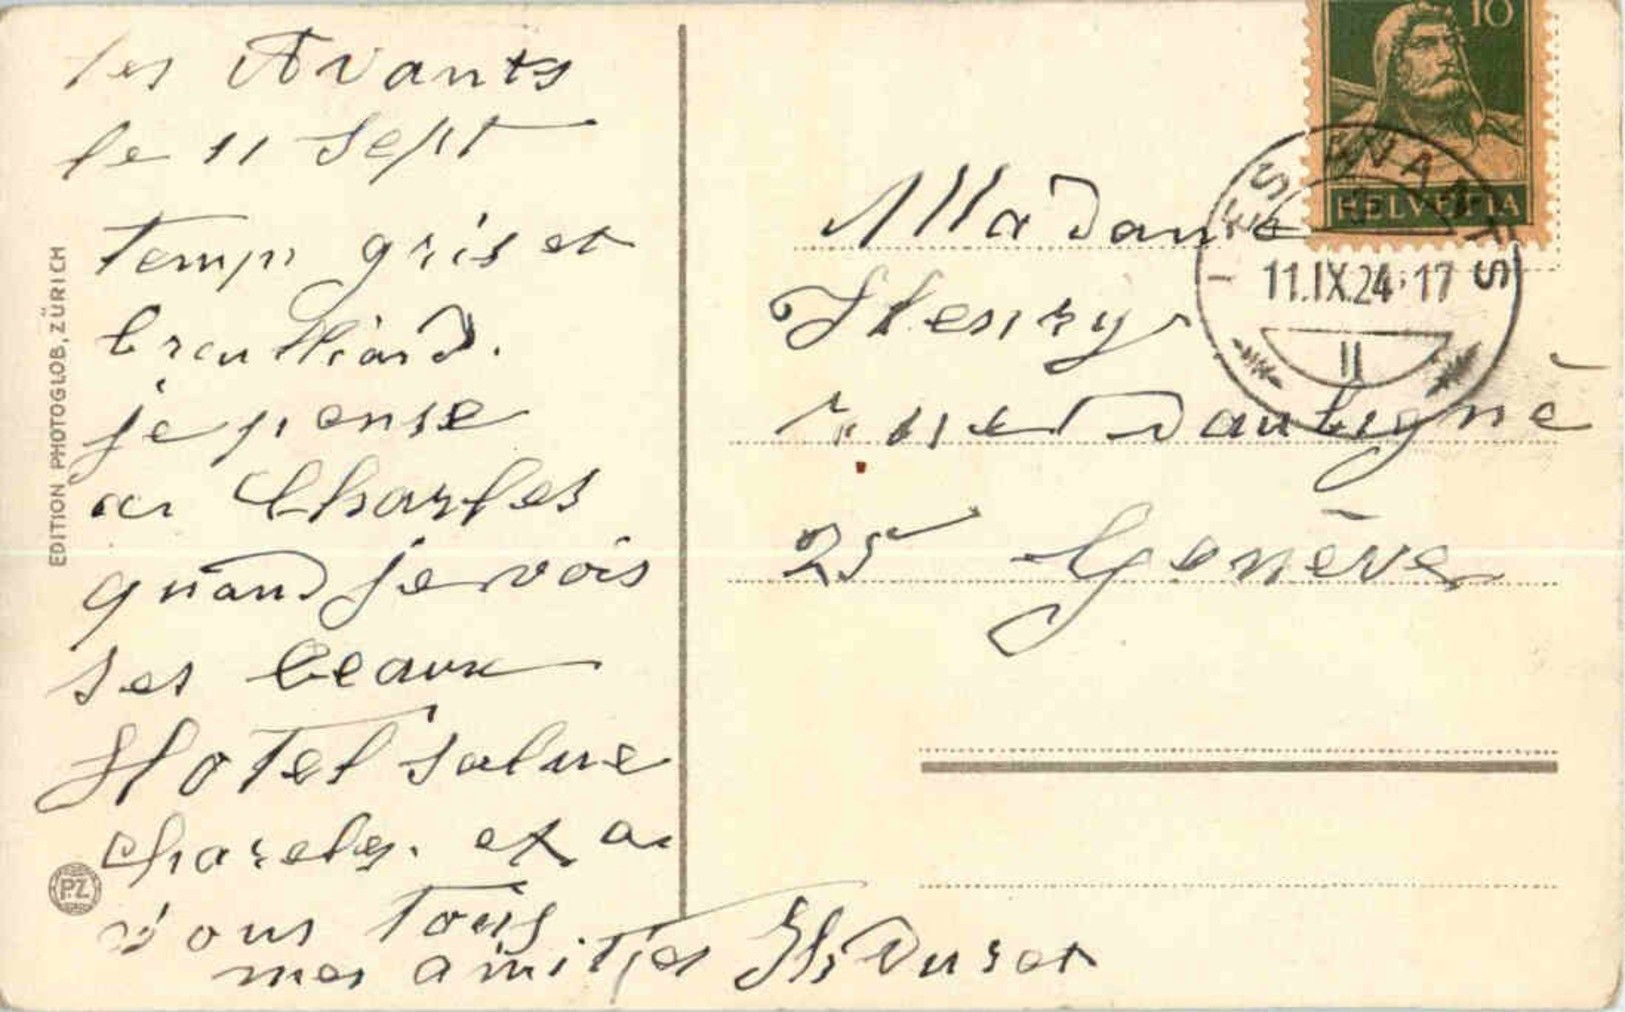 les Avants
le 11 Sept
Temps gris et
brouilliard.
je pense
a Charles
quand je vois
ses beaux
Hotel salue
Charles. et a
vous Tous
mes amities
EDITION PHOTOGLOB, ZÜRICH
PZ
10
HELVETIA
LES AVANTS
11.IX.24·17
II
Madame
Henry
rue Daubigné
25 Genève